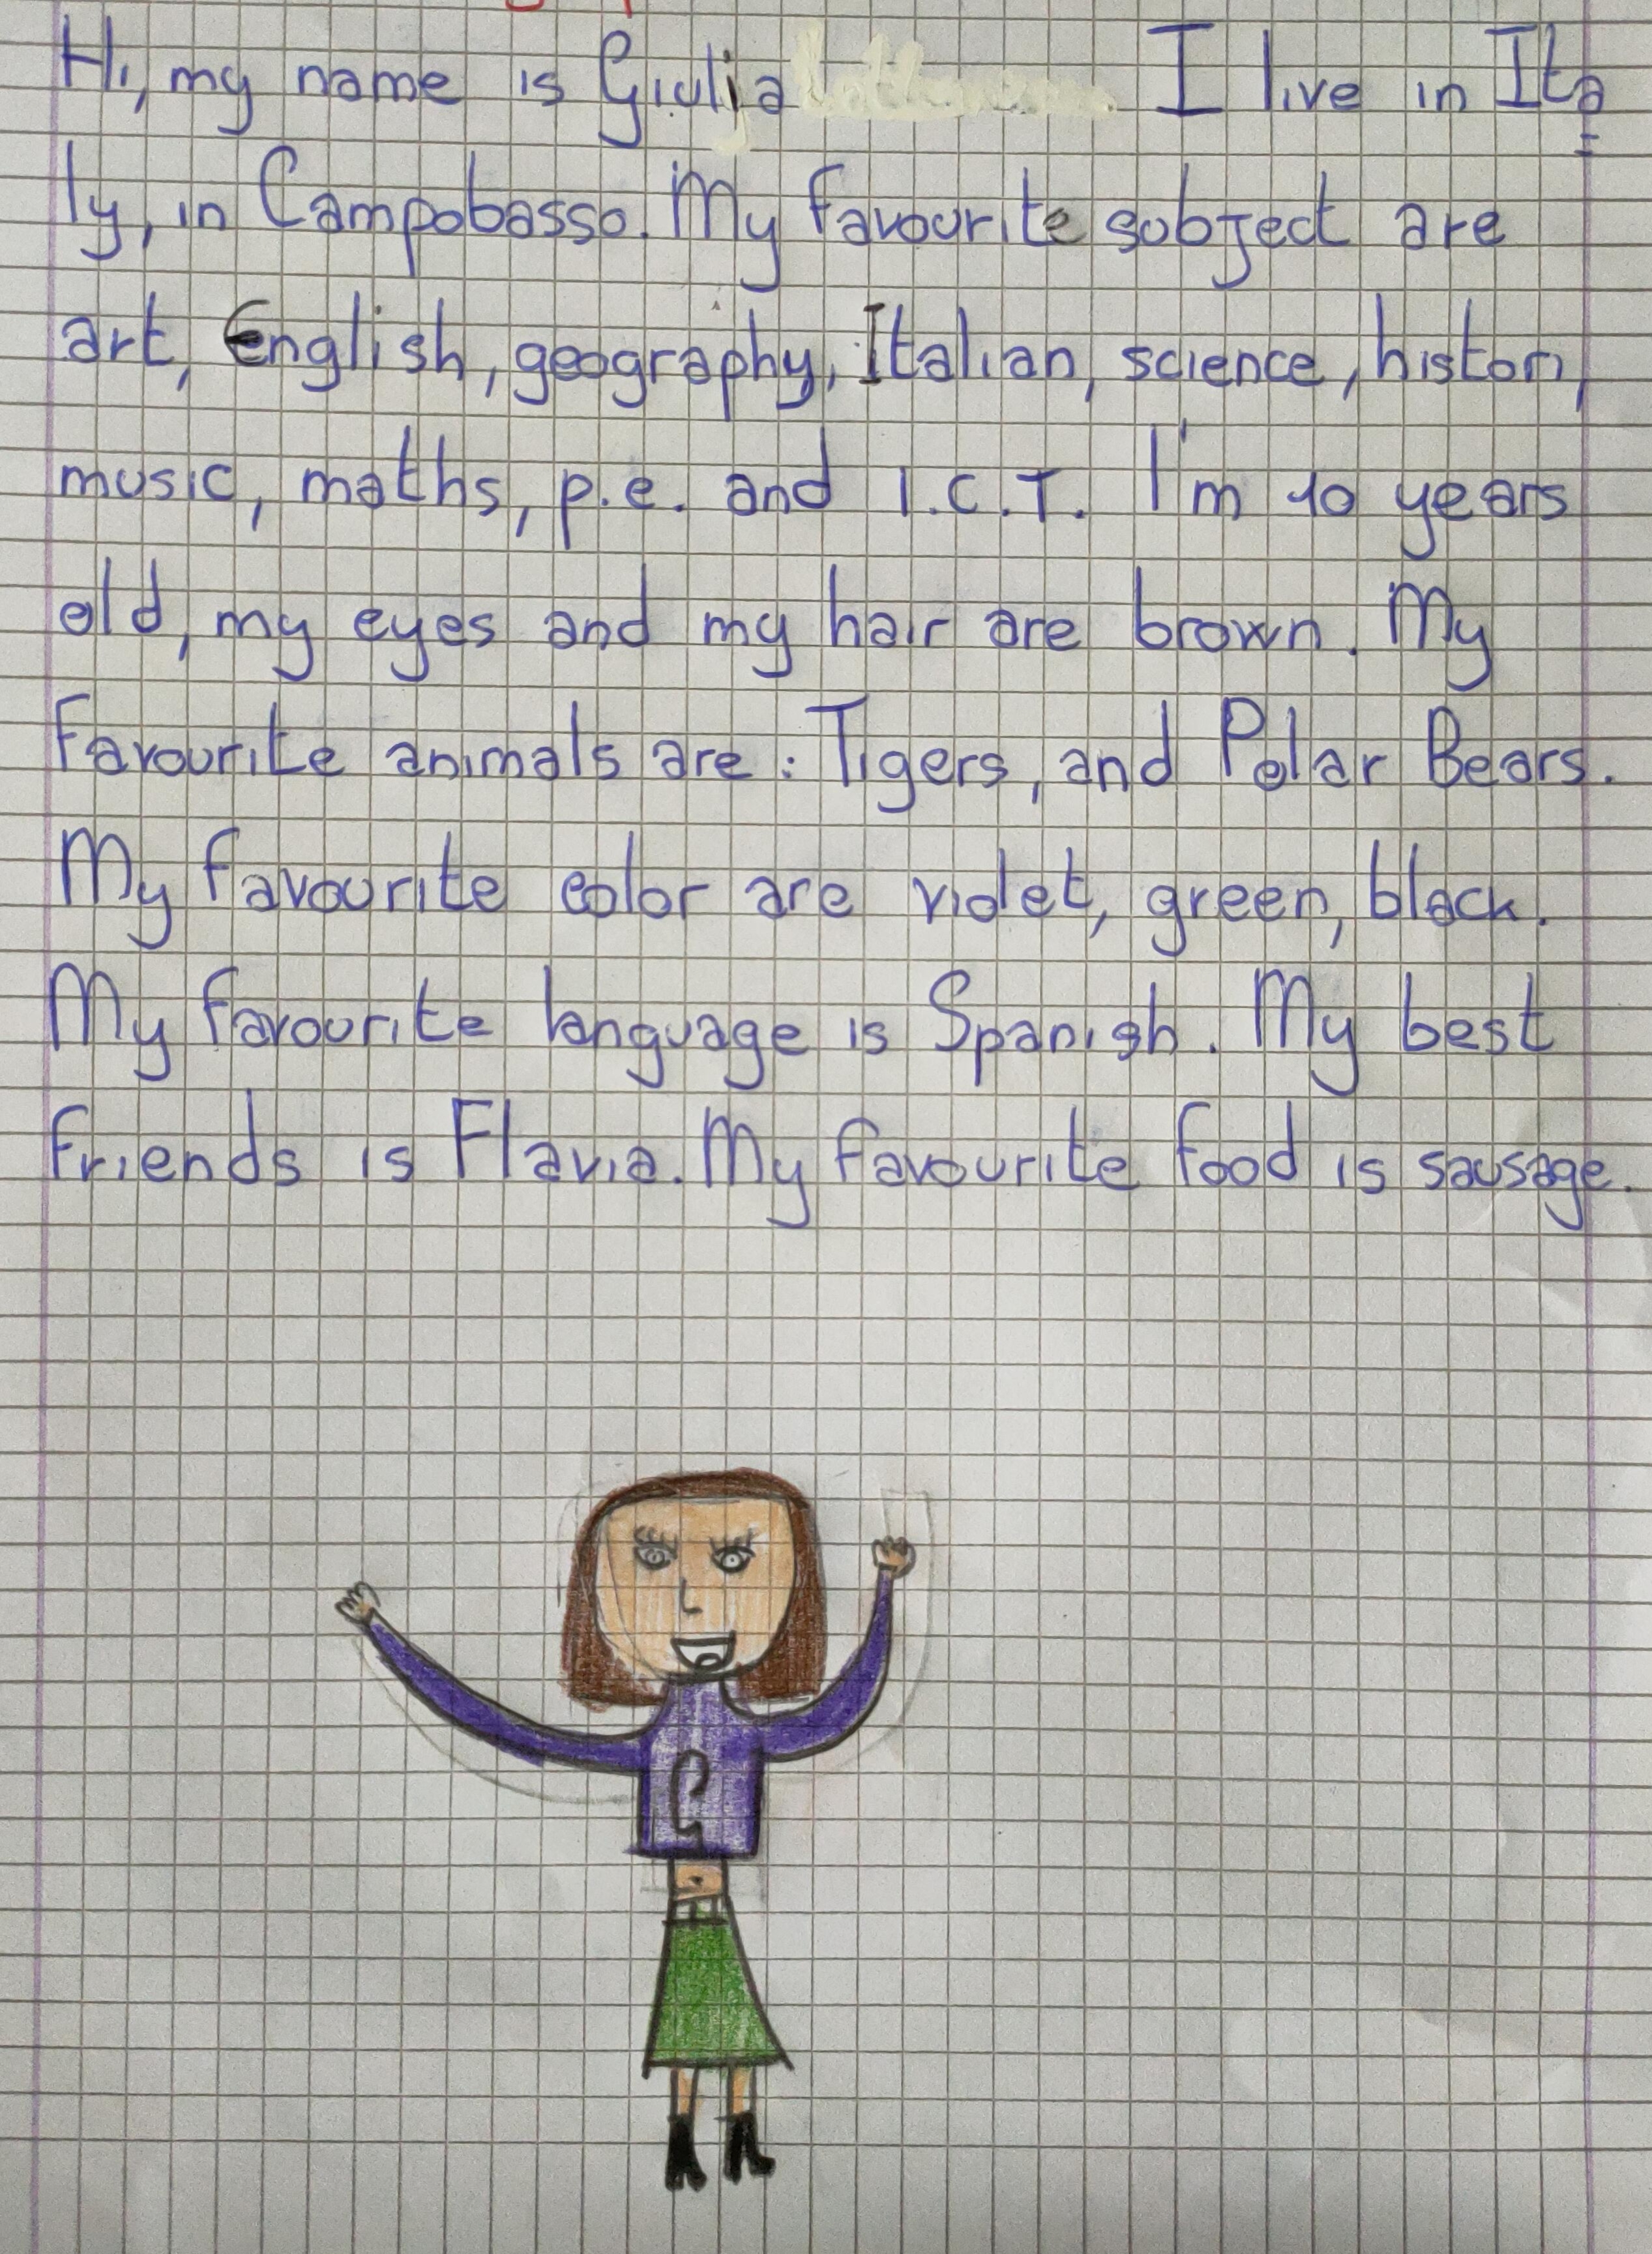 Hi, my name is Giulia I live in Ita=
ly, in Campobasso. My favourite subject are
art, English, geography, Italian, science, history,
music, maths, p.e. and I.C.T. I'm 10 years
old, my eyes and my hair are brown. My
Favourite animals are: Tigers, and Polar Bears.
My favourite color are violet, green, black.
My favourite language is Spanish. My best
friends is Flavia. My favourite food is sausage.
G